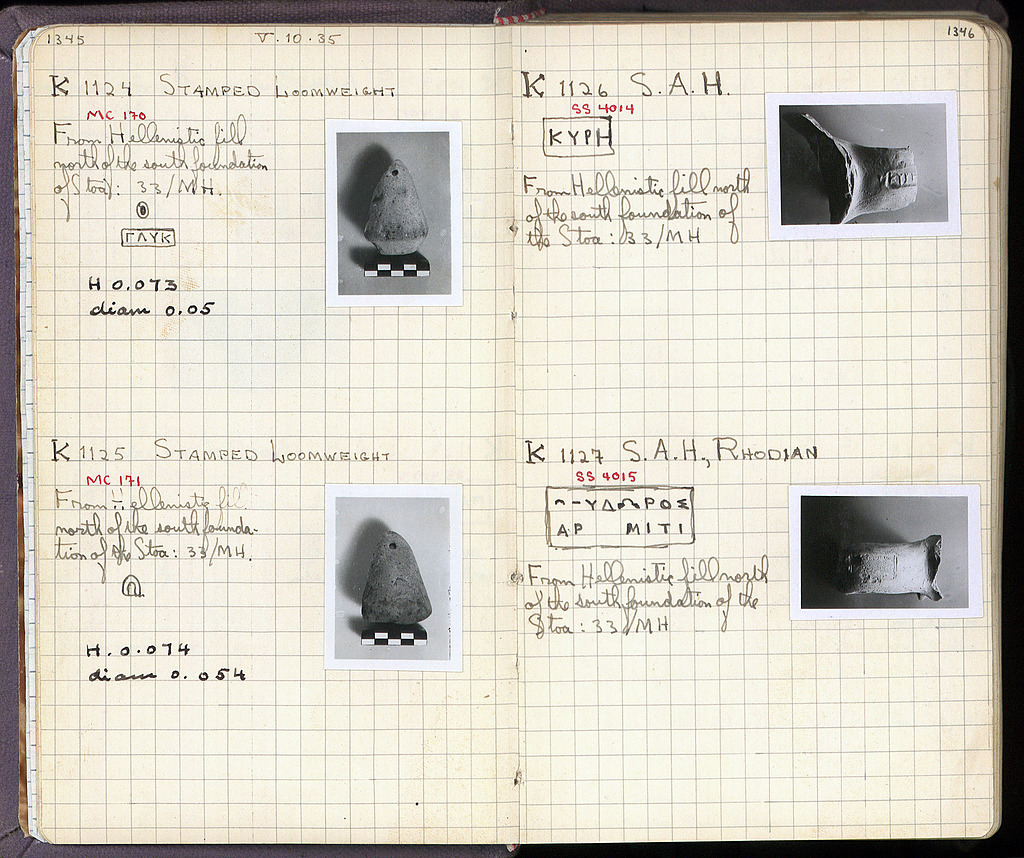 1345
V · 10 · 35
K 1124 STAMPED LOOMWEIGHT
MC 170
From Hellenistic fill
north of the south foundation
of Stoa: 33/MH.
ΓΛΥΚ
H 0.073
diam 0.05
K 1125 STAMPED LOOMWEIGHT
MC 171
From Hellenistic fill
north of the south founda-
tion of the Stoa: 33/MH.
H. 0.074
diam 0.054
1346
K 1126 S.A.H.
SS 4014
ΚΥΡΗ
From Hellenistic fill north
of the south foundation of
the Stoa: 33/MH
K 1127 S.A.H., RHODIAN
SS 4015
ΥΔ ΡΟΣ
ΑΡ ΜΙΤΙ
From Hellenistic fill north
of the south foundation of the
Stoa: 33/MH